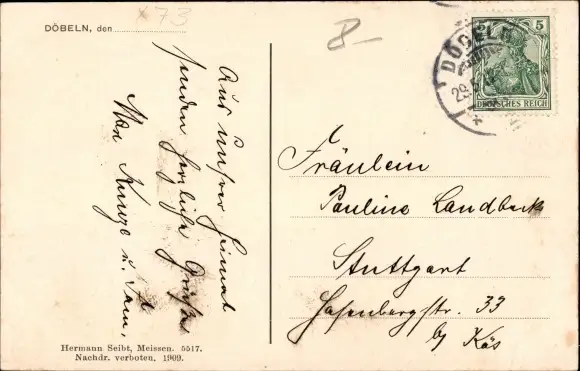 DÖBELN, den
× 73
8-
Aus unsrer Heimat
senden herzliche Grüße
Max Kunze u. Fam.
DÖBELN
29.
5
DEUTSCHES REICH
Fräulein
Pauline Landbeck
Stuttgart
Hasenbergstr. 33
by Käs
Hermann Seibt, Meissen. 5517.
Nachdr. verboten. 1909.